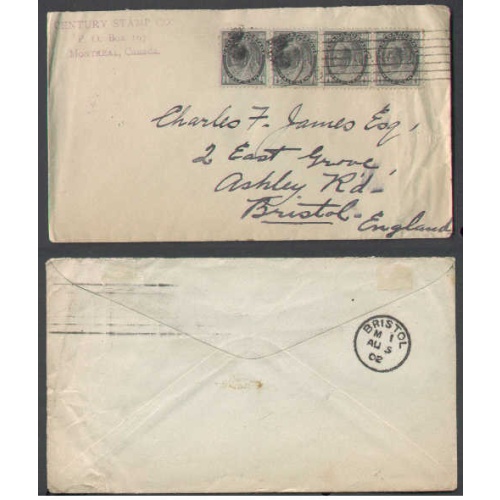 CENTURY STAMP CO.
P. O. Box 193
MONTREAL, Canada.
Charles F. James Esq,
2 East Grove,
Ashley Rd
Bristol
England
BRISTOL
M 1
AU 5
02